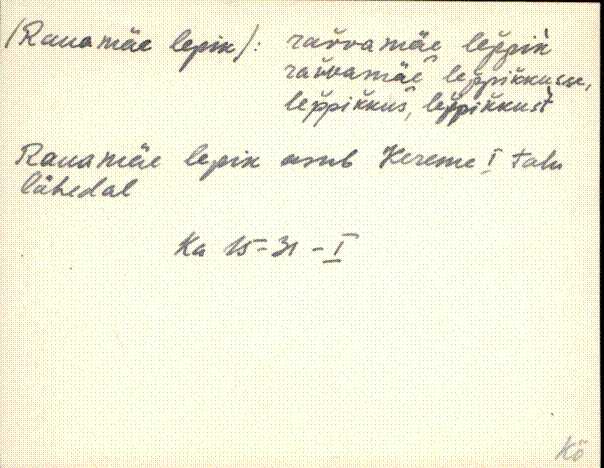 (Rauamäe lepik): raũvamäe lep̆pik
raũvamäe lep̆pikkusse,
lep̆pikkus, lep̆pikkust
Rauamäe lepik asub Kereme I talu
lähedal
Ka 15-31-I
Kõ